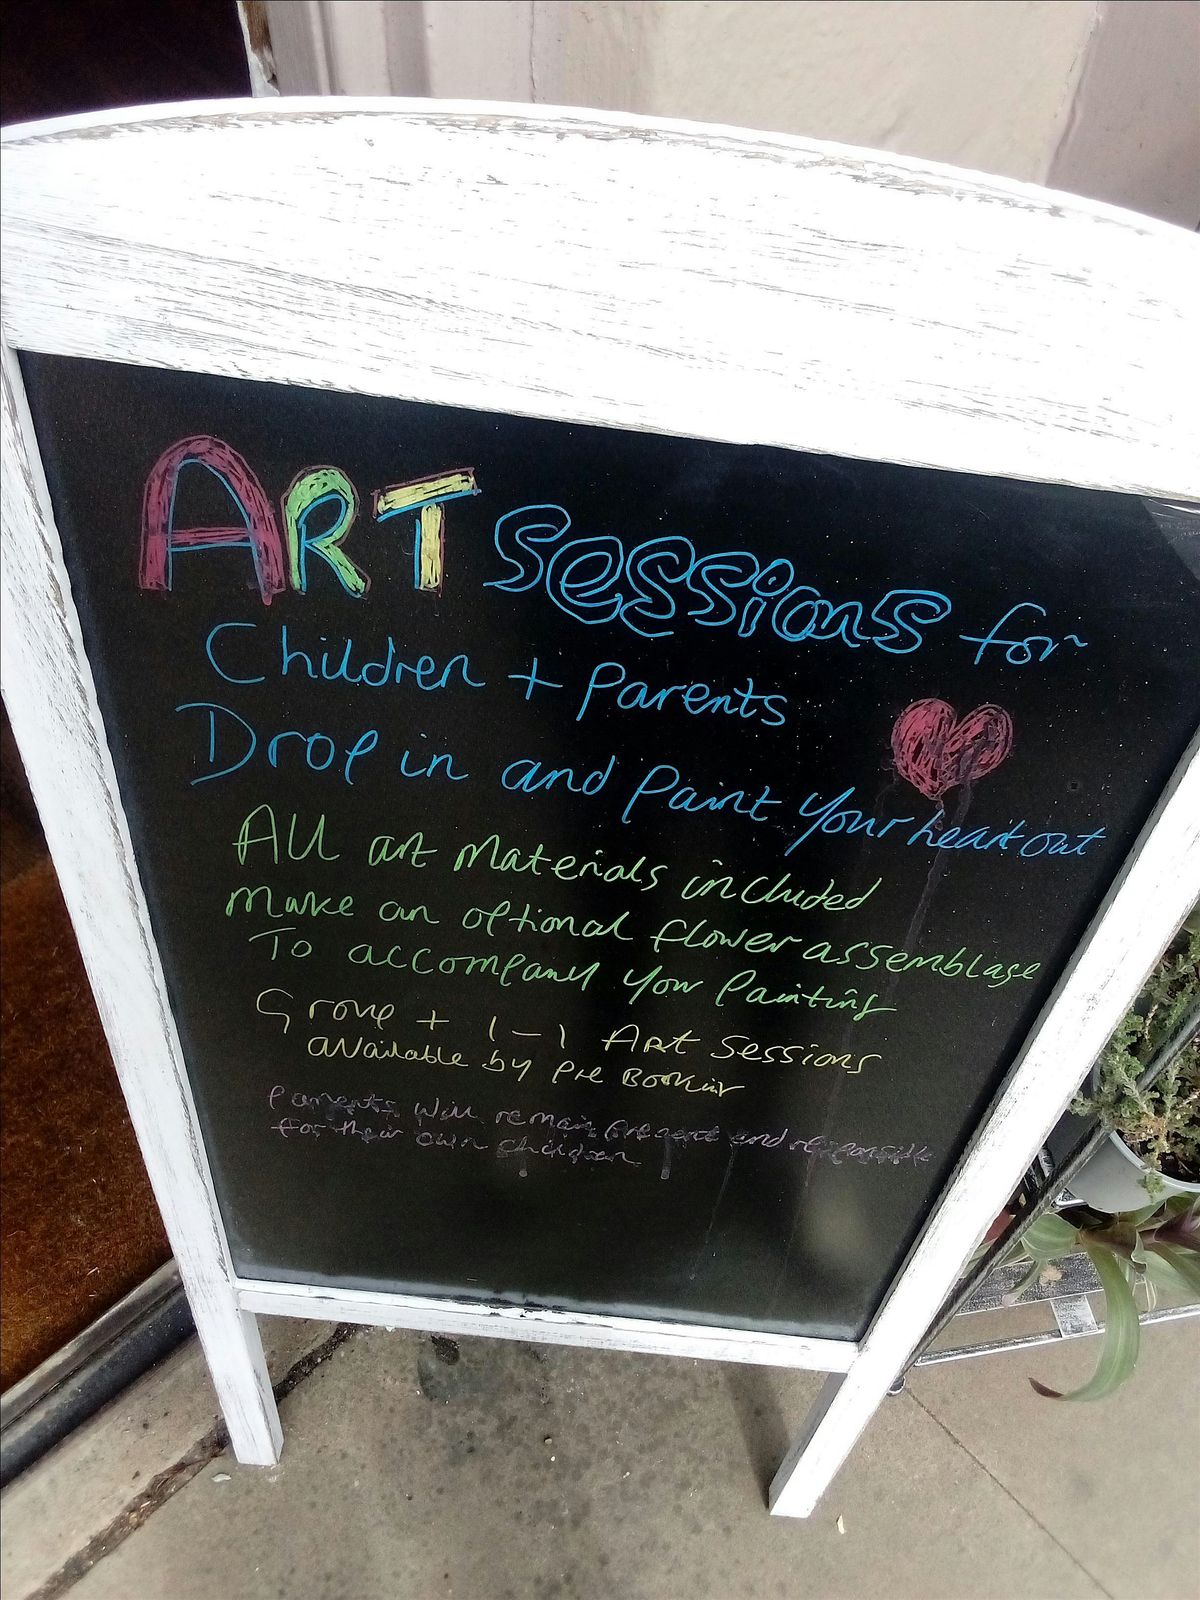 ART Sessions for
Children + Parents
Drop in and paint your heart out
All art materials included
Make an optional flower assemblage
To accompany your painting
Group + 1-1 Art Sessions
available by pre Booking
Parents will remain present and responsible
for their own children